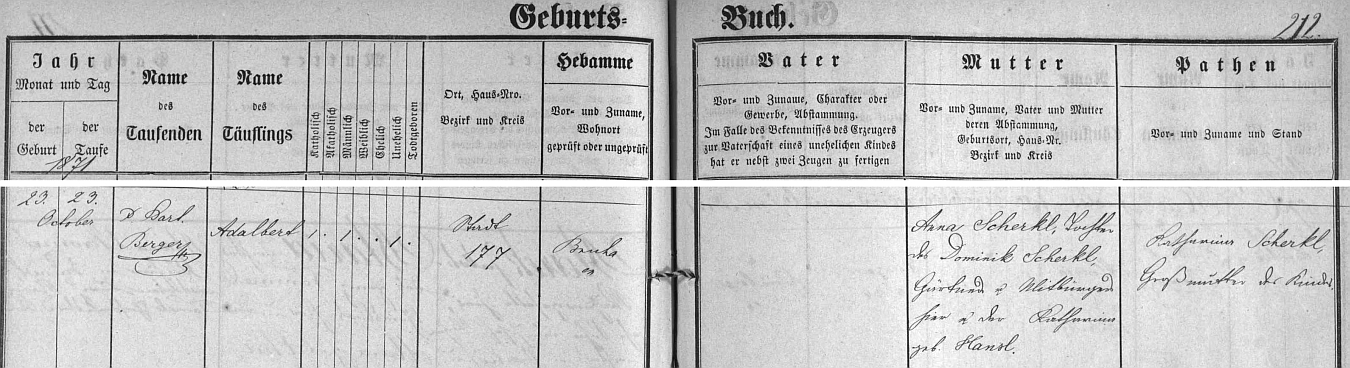 Geburts-Buch.
212.
Jahr
Monat und Tag
der Geburt
der Taufe
1871
Name
des
Taufenden
Name
des
Täuflings
Katholisch
Akatholisch
Männlich
Weiblich
Ehelich
Unehelich
Todtgeboren
Ort, Haus-Nro.
Bezirk und Kreis
Hebamme
Vor- und Zuname,
Wohnort
geprüft oder ungeprüft
Vater
Vor- und Zuname, Charakter oder
Gewerbe, Abstammung.
Im Falle des Bekenntnisses des Erzeugers
zur Vaterschaft eines unehelichen Kindes
hat er nebst zwei Zeugen zu fertigen
Mutter
Vor- und Zuname, Vater und Mutter
deren Abstammung,
Geburtsort, Haus-Nr.
Bezirk und Kreis
Pathen
Vor- und Zuname und Stand
23. 23.
October
Bart.
Berger
Adalbert
1. 1. 1.
Stadt
177
Anna Scherkl, Tochter
des Dominik Scherkl,
Gärtner u Mitbürger
hier u der Katharina
geb. Hansl.
Katharina Scherkl,
Großmutter des Kindes.